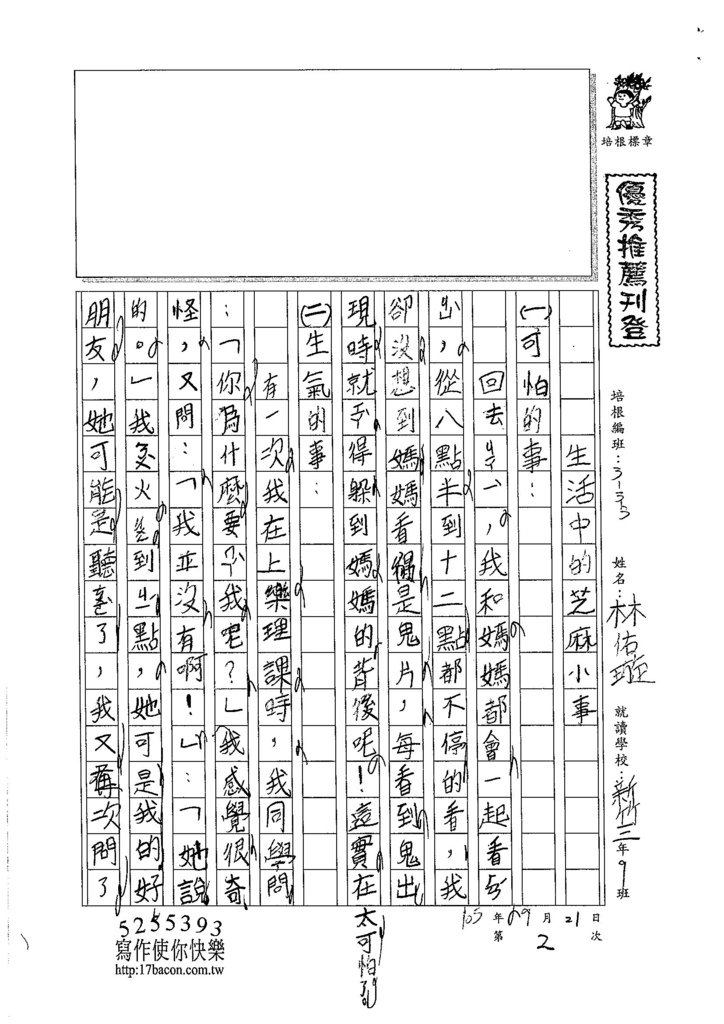 培根標章
優秀推薦刊登
培根編班：3-3-3 姓名：林佑璇 就讀學校：新竹 三年9班
105年09月21日
第2次
生活中的芝麻小事
(一)可怕的事：
回去，我和媽媽都會一起看
，從八點半到十二點都不停的看，我
卻沒想到媽媽看得是鬼片，每看到鬼出
現時就ㄅㄨˋ得躲到媽媽的背後呢！這實在太可怕了
(二)生氣的事：
有一次我在上樂理課時，我同學問
：「你為什麼要我呢？」我感覺很奇
怪，又問：「我並沒有啊！」：「她說
的。」我火到點，她可是我的好
朋友，她可能是聽了，我又再次問了
5255393
寫作使你快樂
http:17bacon.com.tw